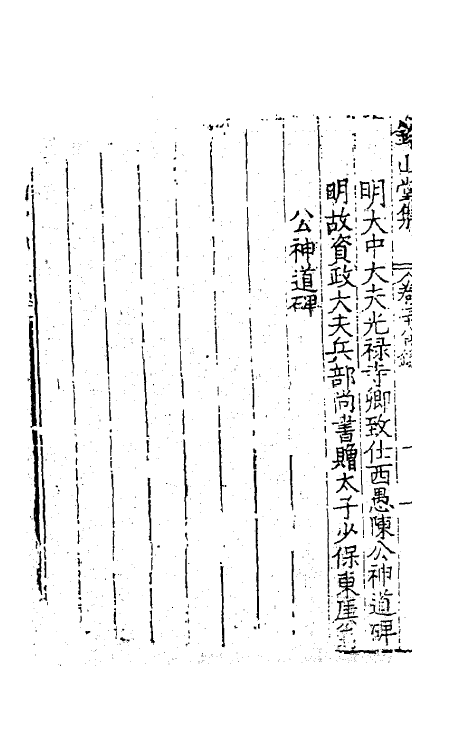 鈐山堂集 卷三十八目錄
明大中大夫光祿寺卿致仕西愚陳公神道碑
明故資政大夫兵部尚書贈太子少保東厓
公神道碑